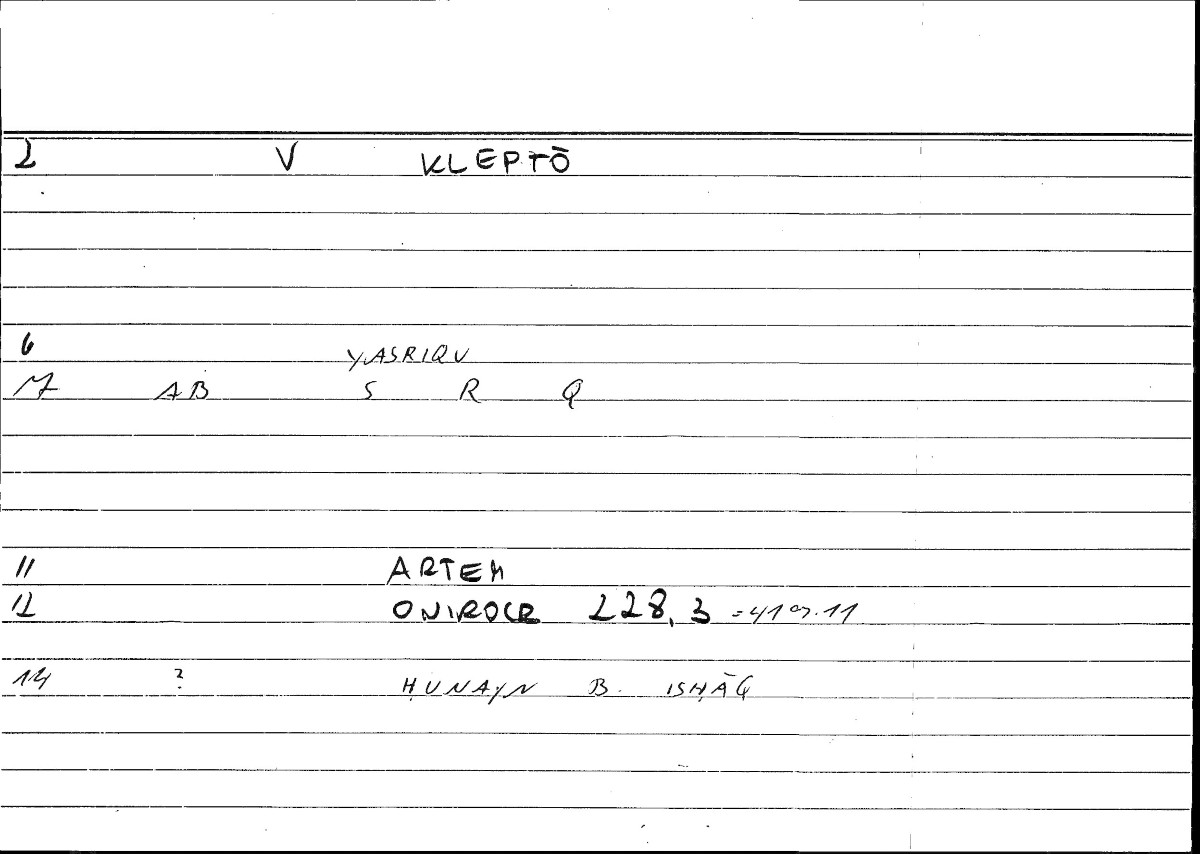 2 V KLEPTŌ
6 YASRIQU
7 AB S R Q
11 ARTEM
12 ONIROCR 228, 3 = 419.11
14 ? ḤUNAYN B. ISḤĀQ